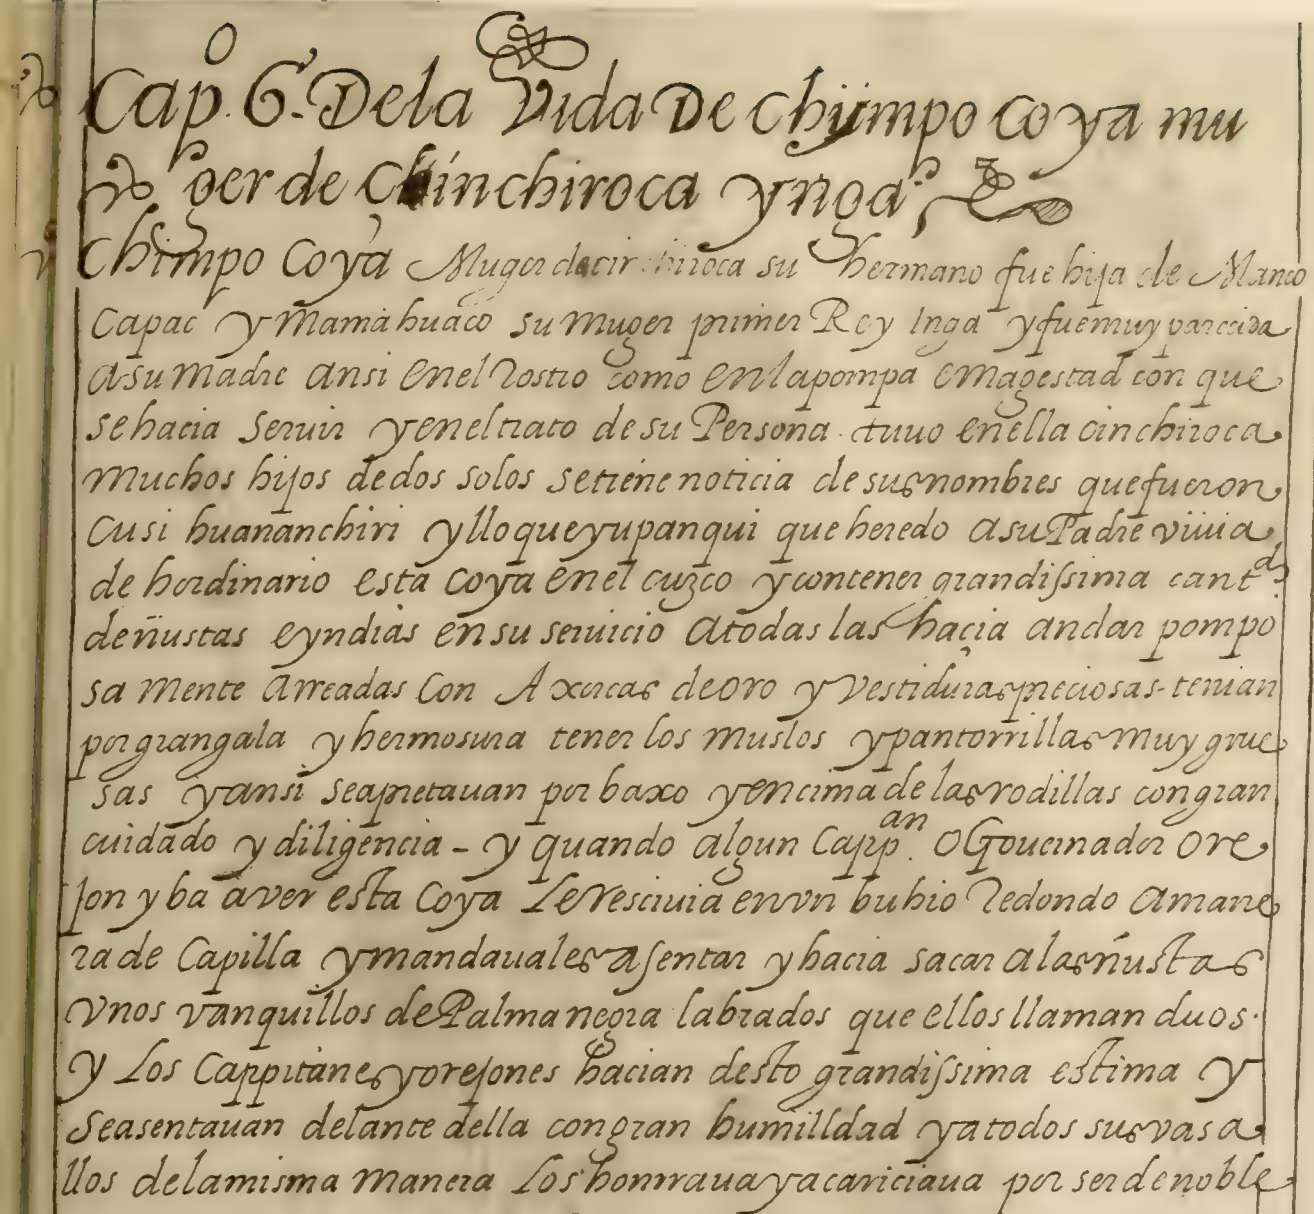 Capº. 6. De la Vida De Chympo Coya mu
ger de Chinchiroca ynga.
Chimpo Coya Muger de cinchiroca su hermano fue hija de Manco
Capac y Mama huaco su muger primer Rey Inga y fue muy parecida
a su madre ansi en el Rostro como en la pompa e Magestad con que
se hacia seruir y en el trato de su Persona. tuuo en ella cinchiroca
muchos hijos de dos solos se tiene noticia de sus nombres que fueron
Cusi huananchiri y lloqueyupanqui que heredo a su Padre viuia
de hordinario esta Coya en el cuzco y con tener grandissima cantdad.
de ñustas e yndias en su seruicio a todas las hacia andar pompo
sa mente arreadas Con Axorcas de oro y vestiduras preciosas. tenian
por gran gala y hermosura tener los muslos y pantorrillas muy grue
sas y ansi se apretauan por baxo y encima de las rodillas con gran
cuidado y diligencia - y quando algun Cappan. o Gouernador ore
jon yba a ver esta Coya Le Resciuia en vn buhio Redondo a mane
ra de Capilla y mandauales asentar y hacia sacar a las ñustas
vnos vanquillos de Palma negra labrados que ellos llaman duos.
y Los Cappitanes y orejones hacian desto grandissima estima y
se asentauan delante della con gran humilldad y a todos sus vasa
llos de la misma manera Los honrraua y acariciaua por ser de noble